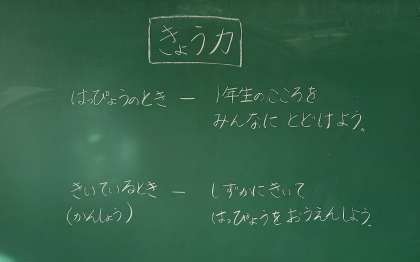 きょう力
はっぴょうのとき － 1年生のこころを
みんなに とどけよう。
きいているとき － しずかにきいて
(かんしょう) はっぴょうをおうえんしよう。